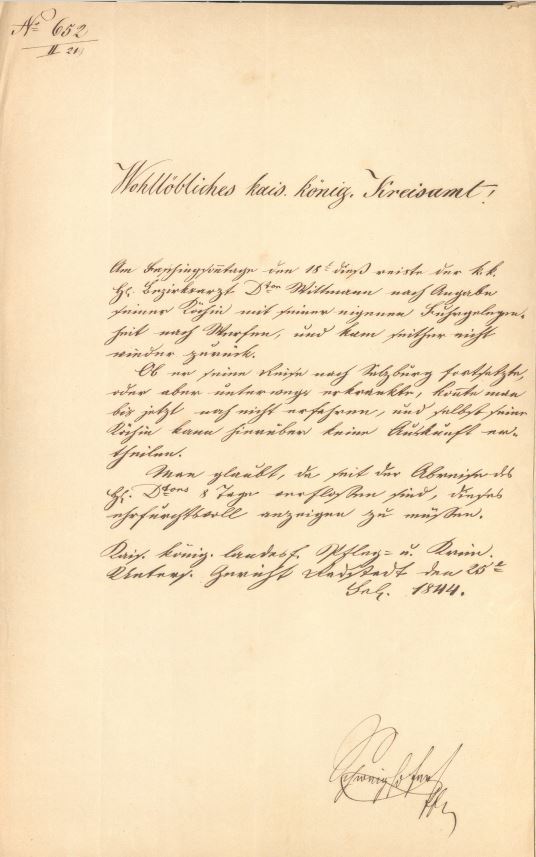 No 652
II 21
Wohllöbliches kais. könig. Kreisamt!
Am Faschingsontage den 18t dieß reiste der k. k.
Hr. Bezirksarzt Dtor Wittmann nach Angabe
seiner Köchin mit seiner eigenen Fuhrgelegen-
heit nach Werfen, und kam seither nicht
wieder zurück.
Ob er seine Reise nach Salzburg fortsetzte,
oder aber unterwegs erkrankte, konte man
bis jetzt noch nicht erfahren, und selbst seine
Köchin kann hierüber keine Auskunft er-
theilen.
Man glaubt, da seit der Abreise des
Hr. Dtors 8 Tage verflossen sind, dieses
ehrfurchtsvoll anzeigen zu müssen.
Kais. könig. landesf. Pfleg- u. Krim.
Unters. Gericht Radstadt den 25t
Feb. 1844.